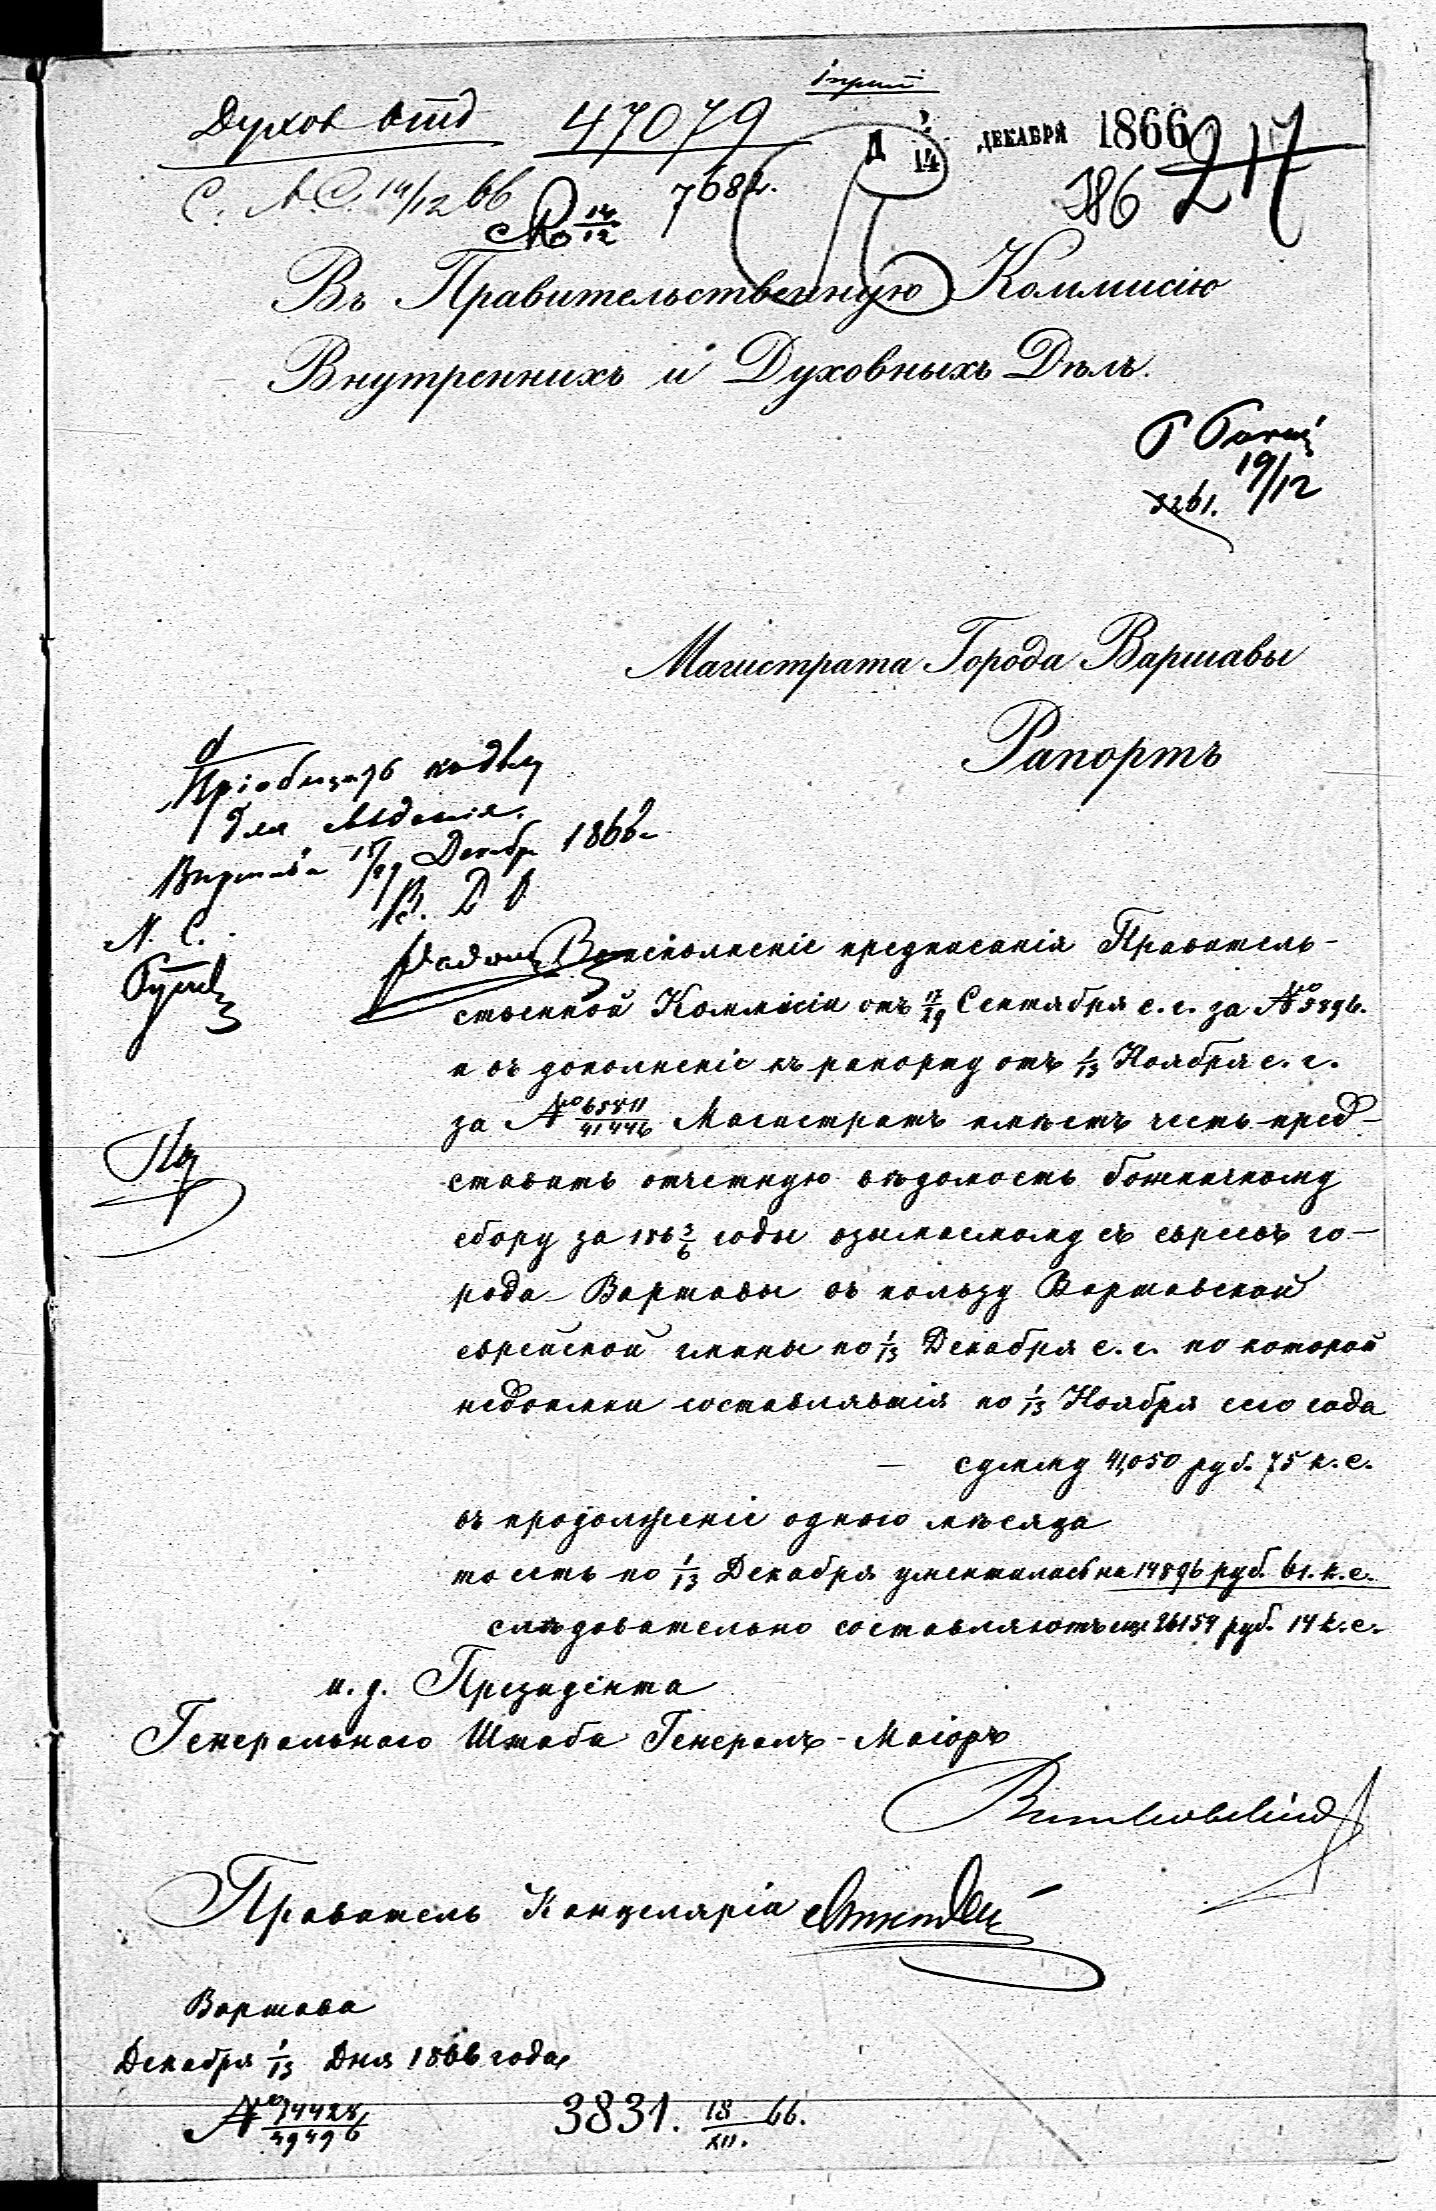 Духов отд 47079
2/14 ДЕКАБРЯ 1866
217
386
С. 14/12 66
14/12 7682.
Въ Правительственную Коммисію
Внутреннихъ и Духовныхъ Дѣлъ.
19/12
3261.
Магистрата Города Варшавы
Рапортъ
Пріобщить къ дѣлу
для свѣдѣнія.
Варшава Декабр 1866
Н. С.
В. Д
Во исполненіе предписанія Правитель-
ственной Коммисіи отъ 17/29 Сентября с. г. за № 5896.
и въ дополненіе къ рапорту отъ 1/13 Ноября с. г.
за № 65811/41446 Магистратъ имѣетъ честь пред-
ставить отчетную вѣдомость божничному
сбору за 186 3/6 годы взымаемому съ евреевъ го-
рода Варшавы въ пользу Варшавской
еврейской гмины по 1/13 Декабря с. г. по которой
недоимки составлявшія по 1/13 Ноября сего года
— сумму 41,050 руб. 75 к. с.
въ продолженіе одного мѣсяца
то есть по 1/13 Декабря уменшились на 14896 руб. 61. к. с.
слѣдовательно составляютъ еще 26154 руб. 14 к. с.
и. д. Президента
Генеральнаго Штаба Генералъ-Маіоръ
Витковскій
Правитель Канцеляріи
Варшава
Декабря 1/13 дня 1866 года
№ 74428/49496
3831. 18/XII. 66.